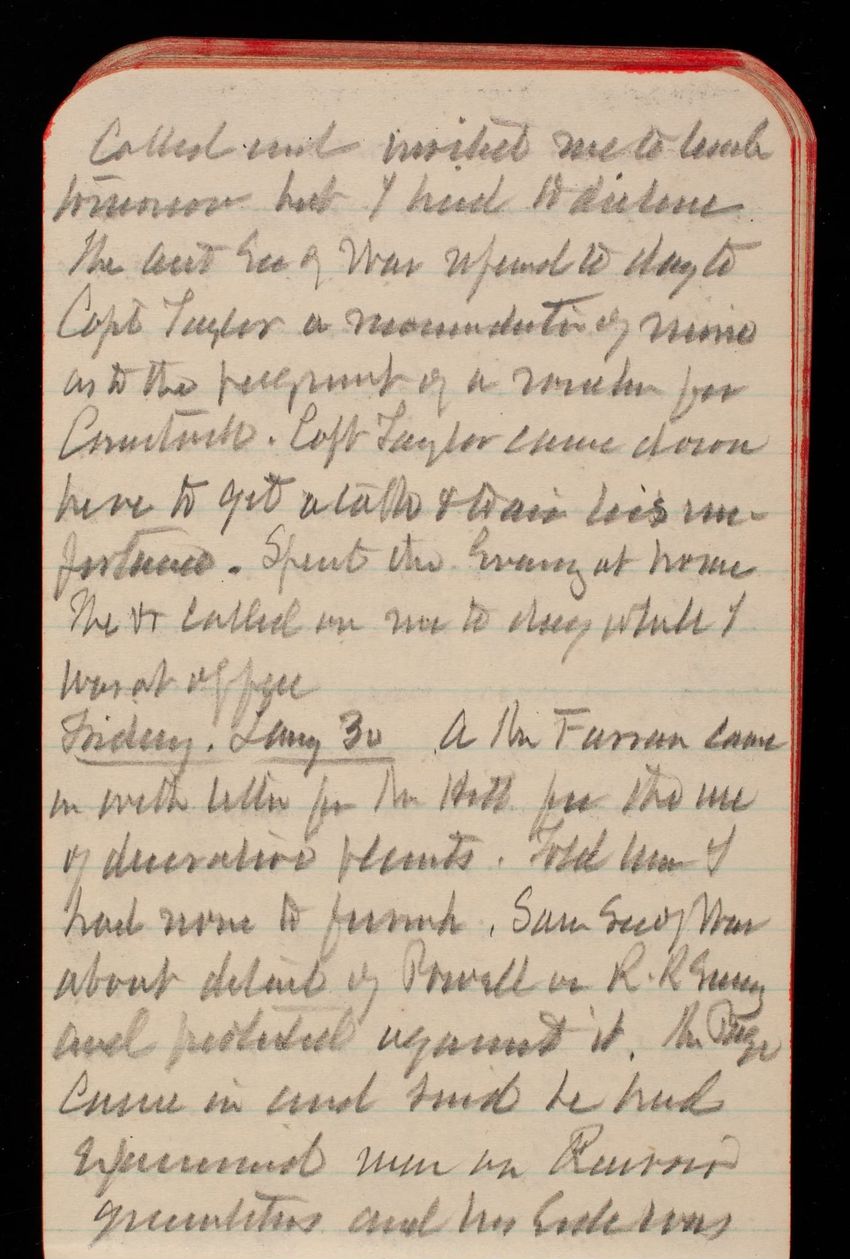 Called and invited me to lunch
tomorrow but I had to decline
The Act Sec of War refused to day to
Capt Taylor a recommendation of mine
as to the of a for
Comstock. Capt Taylor came down
here to get a talk & to air his mis-
fortunes. Spent the Evening at home
The called on me to day while I
was at office
Friday. Jany 30 A Mr Farran came
in with letter fr Mr Hitt for the use
of decorative plants. Told him I
had none to furnish. Saw Sec of War
about detail of Powell on R.R Survey
and protested against it. Mr Page
Came in and said he had
Experienced men on Reservoir
and his Side was